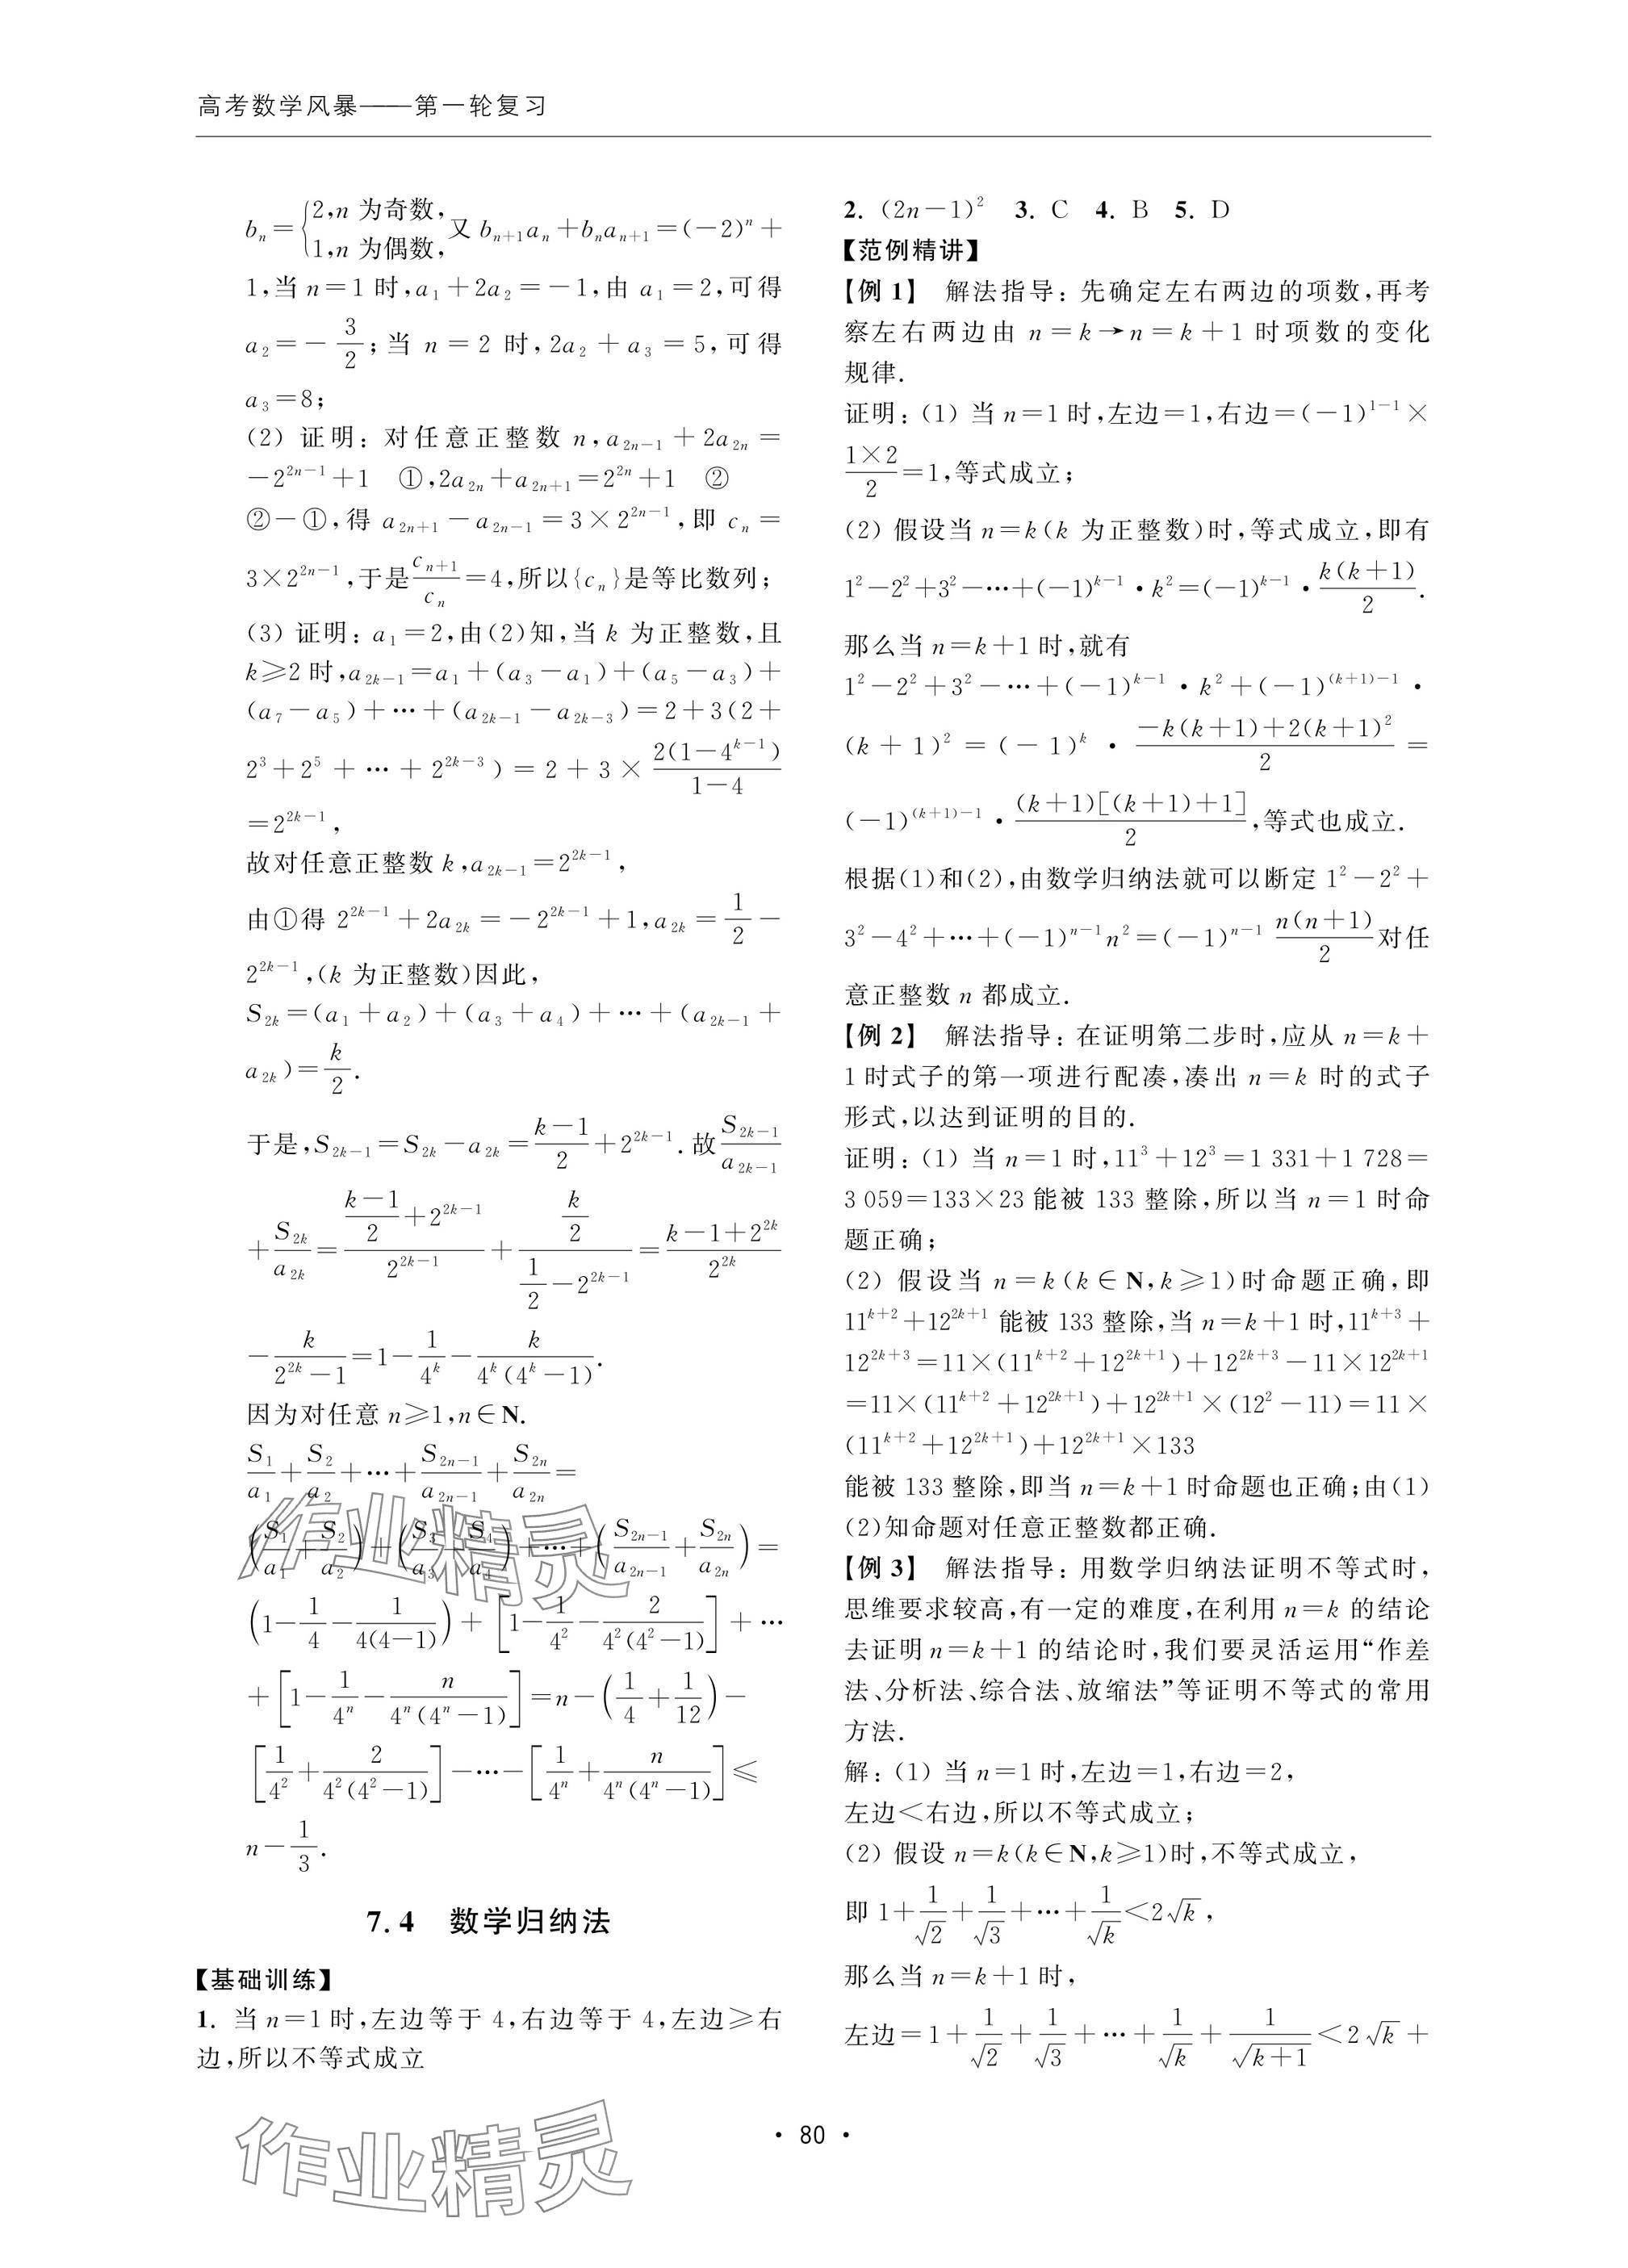 高考数学风暴——第一轮复习
bₙ={2,n 为奇数, 1,n 为偶数, 又 bₙ₊₁aₙ+bₙaₙ₊₁=(-2)ⁿ+
1,当 n=1 时,a₁+2a₂=-1,由 a₁=2,可得
a₂=-3/2;当 n=2 时,2a₂+a₃=5,可得
a₃=8;
(2) 证明:对任意正整数 n,a_{2n-1}+2a_{2n}=
-2^{2n-1}+1 ①,2a_{2n}+a_{2n+1}=2^{2n}+1 ②
②-①,得 a_{2n+1}-a_{2n-1}=3×2^{2n-1},即 cₙ=
3×2^{2n-1},于是c_{n+1}/cₙ=4,所以{cₙ}是等比数列;
(3) 证明:a₁=2,由(2)知,当 k 为正整数,且
k≥2 时,a_{2k-1}=a₁+(a₃-a₁)+(a₅-a₃)+
(a₇-a₅)+…+(a_{2k-1}-a_{2k-3})=2+3(2+
2³+2⁵+…+2^{2k-3})=2+3×2(1-4^{k-1})/(1-4)
=2^{2k-1},
故对任意正整数 k,a_{2k-1}=2^{2k-1},
由①得 2^{2k-1}+2a_{2k}=-2^{2k-1}+1,a_{2k}=1/2-
2^{2k-1},(k 为正整数)因此,
S_{2k}=(a₁+a₂)+(a₃+a₄)+…+(a_{2k-1}+
a_{2k})=k/2.
于是,S_{2k-1}=S_{2k}-a_{2k}=(k-1)/2+2^{2k-1}.故S_{2k-1}/a_{2k-1}
+S_{2k}/a_{2k}=((k-1)/2+2^{2k-1})/2^{2k-1}+(k/2)/(1/2-2^{2k-1})=(k-1+2^{2k})/2^{2k}
-k/(2^{2k}-1)=1-1/4^k-k/(4^k(4^k-1)).
因为对任意 n≥1,n∈N.
S₁/a₁+S₂/a₂+…+S_{2n-1}/a_{2n-1}+S_{2n}/a_{2n}=
(S₁/a₁+S₂/a₂)+(S₃/a₃+S₄/a₄)+…+(S_{2n-1}/a_{2n-1}+S_{2n}/a_{2n})=
(1-1/4-1/(4(4-1)))+[1-1/4²-2/(4²(4²-1))]+…
+[1-1/4ⁿ-n/(4ⁿ(4ⁿ-1))]=n-(1/4+1/12)-
[1/4²+2/(4²(4²-1))]-…-[1/4ⁿ+n/(4ⁿ(4ⁿ-1))]≤
n-1/3.
7.4 数学归纳法
【基础训练】
1. 当 n=1 时,左边等于 4,右边等于 4,左边≥右
边,所以不等式成立
2. (2n-1)² 3. C 4. B 5. D
【范例精讲】
【例 1】 解法指导:先确定左右两边的项数,再考
察左右两边由 n=k→n=k+1 时项数的变化
规律.
证明:(1) 当 n=1 时,左边=1,右边=(-1)^{1-1}×
1×2/2=1,等式成立;
(2) 假设当 n=k(k 为正整数)时,等式成立,即有
1²-2²+3²-…+(-1)^{k-1}·k²=(-1)^{k-1}·k(k+1)/2.
那么当 n=k+1 时,就有
1²-2²+3²-…+(-1)^{k-1}·k²+(-1)^{(k+1)-1}·
(k+1)²=(-1)^k·(-k(k+1)+2(k+1)²)/2=
(-1)^{(k+1)-1}·(k+1)[(k+1)+1]/2,等式也成立.
根据(1)和(2),由数学归纳法就可以断定 1²-2²+
3²-4²+…+(-1)^{n-1}n²=(-1)^{n-1} n(n+1)/2对任
意正整数 n 都成立.
【例 2】 解法指导:在证明第二步时,应从 n=k+
1 时式子的第一项进行配凑,凑出 n=k 时的式子
形式,以达到证明的目的.
证明:(1) 当 n=1 时,11³+12³=1 331+1 728=
3 059=133×23 能被 133 整除,所以当 n=1 时命
题正确;
(2) 假设当 n=k(k∈N,k≥1)时命题正确,即
11^{k+2}+12^{2k+1} 能被 133 整除,当 n=k+1 时,11^{k+3}+
12^{2k+3}=11×(11^{k+2}+12^{2k+1})+12^{2k+3}-11×12^{2k+1}
=11×(11^{k+2}+12^{2k+1})+12^{2k+1}×(12²-11)=11×
(11^{k+2}+12^{2k+1})+12^{2k+1}×133
能被 133 整除,即当 n=k+1 时命题也正确;由(1)
(2)知命题对任意正整数都正确.
【例 3】 解法指导:用数学归纳法证明不等式时,
思维要求较高,有一定的难度,在利用 n=k 的结论
去证明 n=k+1 的结论时,我们要灵活运用“作差
法、分析法、综合法、放缩法”等证明不等式的常用
方法.
解:(1) 当 n=1 时,左边=1,右边=2,
左边<右边,所以不等式成立;
(2) 假设 n=k(k∈N,k≥1)时,不等式成立,
即 1+1/√2+1/√3+…+1/√k<2√k,
那么当 n=k+1 时,
左边=1+1/√2+1/√3+…+1/√k+1/√(k+1)<2√k+
· 80 ·
作业精灵
作业精灵